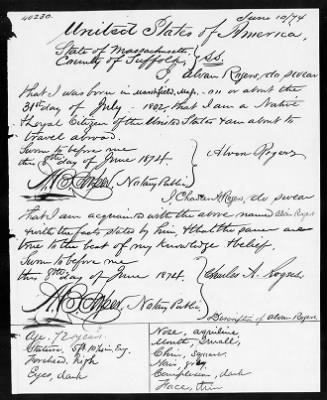 40230.
June 10/74
United States of America,
State of Massachusetts,
County of Suffolk, } SS.
I, Alvan Rogers, do swear
that I was born in Marshfield, Mass. on or about the
31st day of July 1802; that I am a Native
& Loyal Citizen of the United States & am about to
travel abroad.
Sworn to before me
this day of June 1874. } Alvan Rogers
Notary Public
I, Charles A. Rogers, do swear
that I am acquainted with the above named Alvan Rogers
& with the facts stated by him, & that the same are
true to the best of my knowledge & belief.
Sworn to before me
this day of June 1874. } Charles A. Rogers
Notary Public.
Description of Alvan Rogers
Age: years
Stature, 5 ft. in, Eng.
Forehead, high
Eyes, dark
Nose, aquiline
Mouth, small,
Chin, square
Hair, gray
Complexion, dark
Face, thin